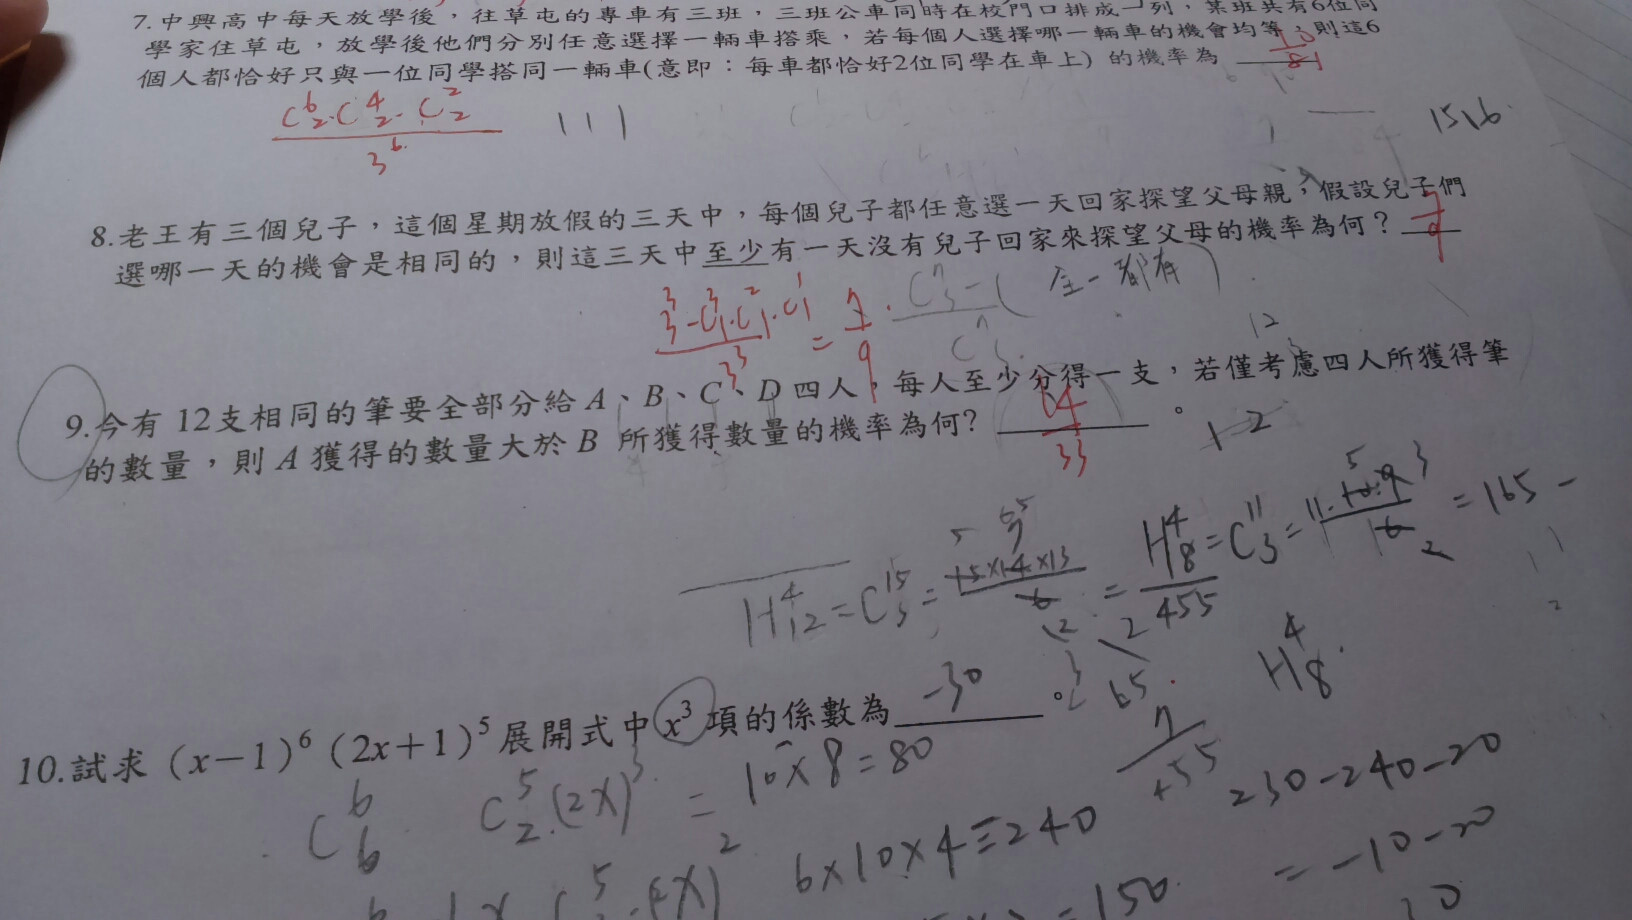 7.中興高中每天放學後，往草屯的專車有三班，三班公車同時在校門口排成一列，某班共有6位同
學家住草屯，放學後他們分別任意選擇一輛車搭乘，若每個人選擇哪一輛車的機會均等，則這6
個人都恰好只與一位同學搭同一輛車(意即：每車都恰好2位同學在車上) 的機率為
C⁶₂·C⁴₂·C²₂
3⁶
1 1 1
8.老王有三個兒子，這個星期放假的三天中，每個兒子都任意選一天回家探望父母親，假設兒子們
選哪一天的機會是相同的，則這三天中至少有一天沒有兒子回家來探望父母的機率為何？ 7/9
3³-C³₁·C²₁·C¹₁
3³
= 7/9
全一都有
12
9.今有 12支相同的筆要全部分給 A、B、C、D 四人，每人至少分得一支，若僅考慮四人所獲得筆
的數量，則 A 獲得的數量大於 B 所獲得數量的機率為何？ 14/33 。
H⁴₁₂=C¹⁵₃=15×14×13/6=
H⁴₈=C¹¹₃= =165
455
H⁴₈
65
10.試求 (x－1)⁶ (2x＋1)⁵ 展開式中 x³ 項的係數為 -30 。
C⁶₆ C⁵₂·(2x)³ = 10×8=80
6×10×4=240
230-240-20
=150
=-10-20